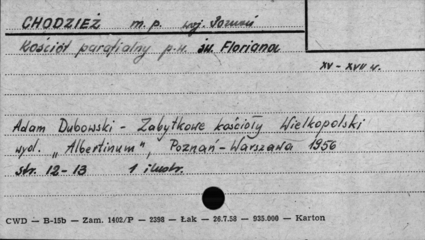 CHODZIEŻ m.p. woj. Poznań
Kościół parafialny p.w. św. Floriana
XV - XVII w.
Adam Dubowski - Zabytkowe kościoły Wielkopolski
wyd. „Albertinum", Poznań-Warszawa 1956
str. 12-13 1 ilustr.
CWD — B-15b — Zam. 1402/P — 2398 — Łak — 26.7.58 — 935.000 — Karton